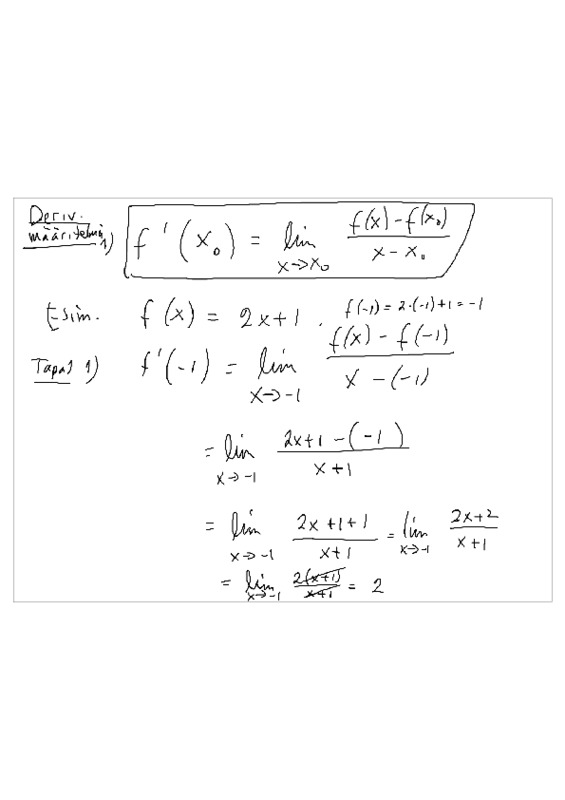 Deriv.
määritelmä 1) f'(x₀) = lim x→x₀ (f(x) - f(x₀))/(x - x₀)
Esim. f(x) = 2x+1. f(-1) = 2·(-1)+1 = -1
Tapa 1) f'(-1) = lim x→-1 (f(x) - f(-1))/(x - (-1))
= lim x→-1 (2x+1-(-1))/(x+1)
= lim x→-1 (2x+1+1)/(x+1) = lim x→-1 (2x+2)/(x+1)
= lim x→-1 2(x+1)/(x+1) = 2